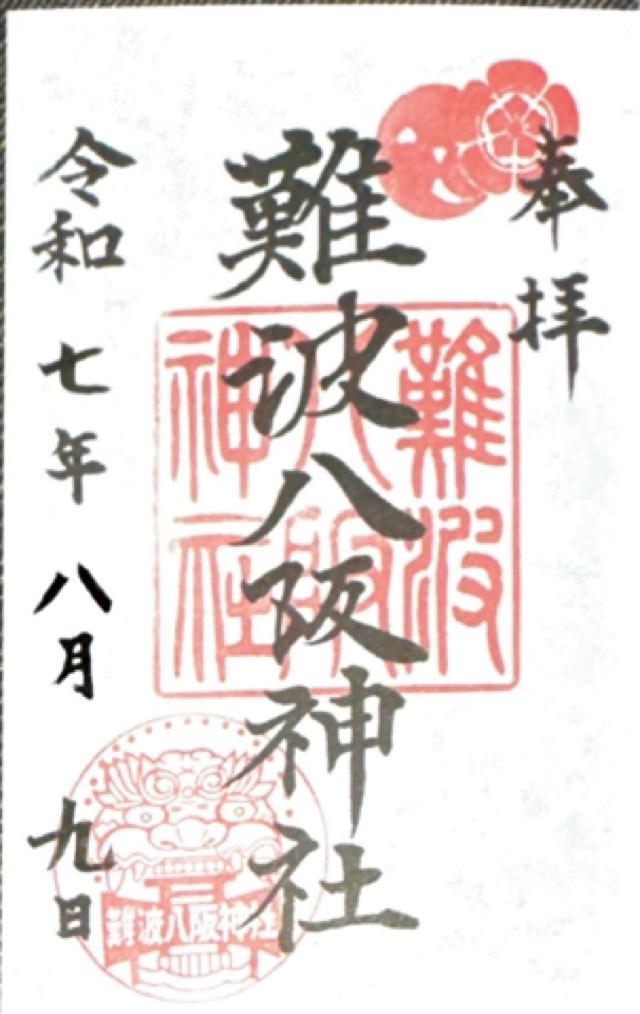 奉拝
難波八阪神社
難波八阪神社
令和七年八月九日
難波八阪神社